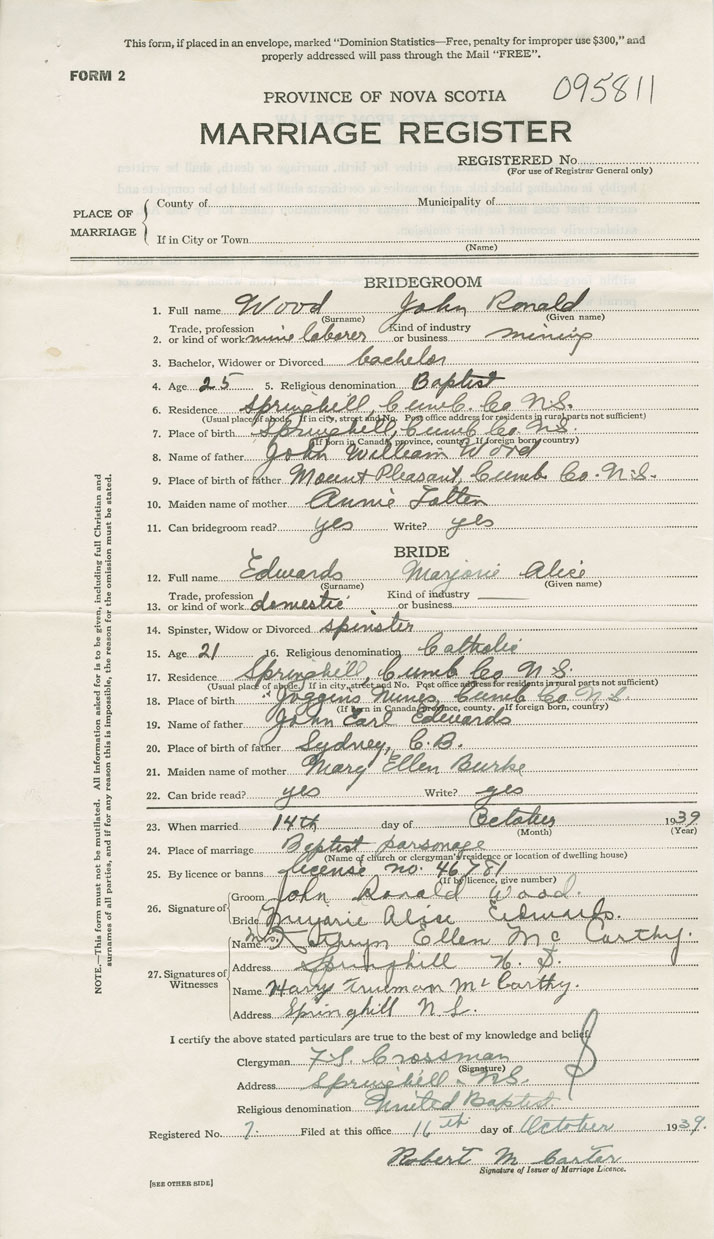 This form, if placed in an envelope, marked "Dominion Statistics—Free, penalty for improper use $300," and
properly addressed will pass through the Mail "FREE".
FORM 2
095811
PROVINCE OF NOVA SCOTIA
MARRIAGE REGISTER
REGISTERED No.
(For use of Registrar General only)
PLACE OF MARRIAGE
County of Municipality of
If in City or Town
(Name)
BRIDEGROOM
1. Full name Wood John Ronald
(Surname) (Given name)
Trade, profession Kind of industry
2. or kind of work mine laborer or business mining
3. Bachelor, Widower or Divorced bachelor
4. Age 25 5. Religious denomination Baptist
6. Residence Springhill, Cumb. Co N.S.
(Usual place of abode. If in city, street and No. Post office address for residents in rural parts not sufficient)
7. Place of birth Springhill, Cumb. Co. N.S.
(If born in Canada, province, county. If foreign born, country)
8. Name of father John William Wood
9. Place of birth of father Mount Pleasant, Cumb Co. N.S.
10. Maiden name of mother Annie
11. Can bridegroom read? yes Write? yes
BRIDE
12. Full name Edwards Marjorie Alice
(Surname) (Given name)
Trade, profession Kind of industry
13. or kind of work domestic or business
14. Spinster, Widow or Divorced spinster
15. Age 21 16. Religious denomination Catholic
17. Residence Springhill, Cumb Co N.S.
(Usual place of abode. If in city, street and No. Post office address for residents in rural parts not sufficient)
18. Place of birth Joggins Mines, Cumb Co N.S.
(If born in Canada, province, county. If foreign born, country)
19. Name of father John Earl Edwards
20. Place of birth of father Sydney, C.B.
21. Maiden name of mother Mary Ellen Burke
22. Can bride read? yes Write? yes
23. When married 14th day of October 1939
(Month) (Year)
24. Place of marriage Baptist parsonage
(Name of church or clergyman's residence or location of dwelling house)
25. By licence or banns license no. 46781
(If by licence, give number)
26. Signature of
Groom John Ronald Wood.
Bride Marjorie Alice Edwards.
27. Signatures of Witnesses
Name Mrs. Kathryn Ellen McCarthy.
Address Springhill N.S.
Name Harry Truman McCarthy.
Address Springhill N.S.
I certify the above stated particulars are true to the best of my knowledge and belief.
Clergyman F.S. Crossman
(Signature)
Address Springhill, N.S.
Religious denomination United Baptist
Registered No. 7. Filed at this office 16th day of October 1939.
Robert M Carter
Signature of Issuer of Marriage Licence.
[SEE OTHER SIDE]
NOTE.—This form must not be mutilated. All information asked for is to be given, including full Christian and
surnames of all parties, and if for any reason this is impossible, the reason for the omission must be stated.